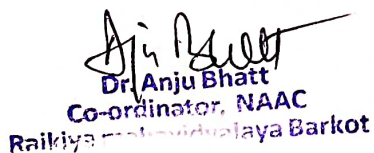 Anju Bhatt
Dr. Anju Bhatt
Co-ordinator, NAAC
Raikiya mahavidyalaya Barkot